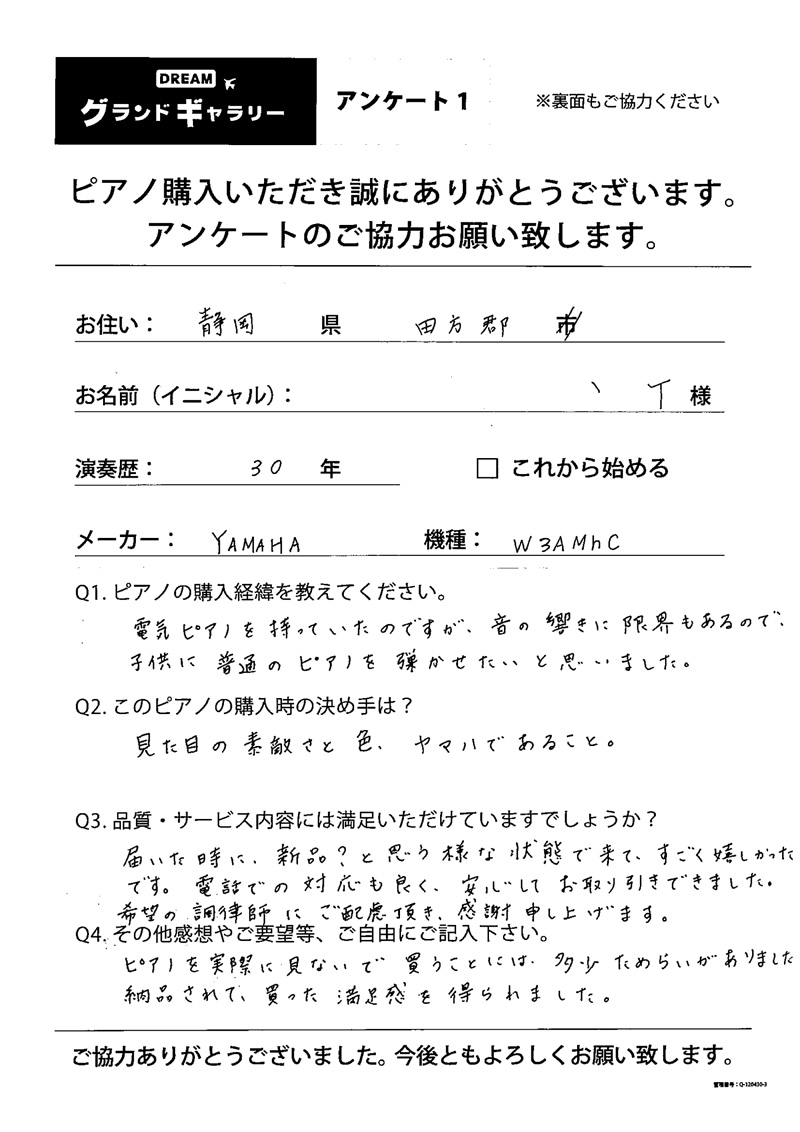 DREAM
グランドギャラリー
アンケート 1
※裏面もご協力ください
ピアノ購入いただき誠にありがとうございます。
アンケートのご協力お願い致します。
お住い： 静岡 県 田方郡 市
お名前（イニシャル）： 、 T 様
演奏歴： 30 年 □ これから始める
メーカー： YAMAHA 機種： W3AMhC
Q1. ピアノの購入経緯を教えてください。
電気ピアノを持っていたのですが、音の響きに限界もあるので、
子供に普通のピアノを弾かせたいと思いました。
Q2. このピアノの購入時の決め手は？
見た目の素敵さと色、ヤマハであること。
Q3. 品質・サービス内容には満足いただけていますでしょうか？
届いた時に、新品？と思う様な状態で来て、すごく嬉しかった
です。電話での対応も良く、安心してお取り引きできました。
希望の調律師にご配慮頂き、感謝申し上げます。
Q4. その他感想やご要望等、ご自由にご記入下さい。
ピアノを実際に見ないで買うことには、多少ためらいがありました
納品されて、買った満足感を得られました。
ご協力ありがとうございました。今後ともよろしくお願い致します。
管理番号：Q-120430-3